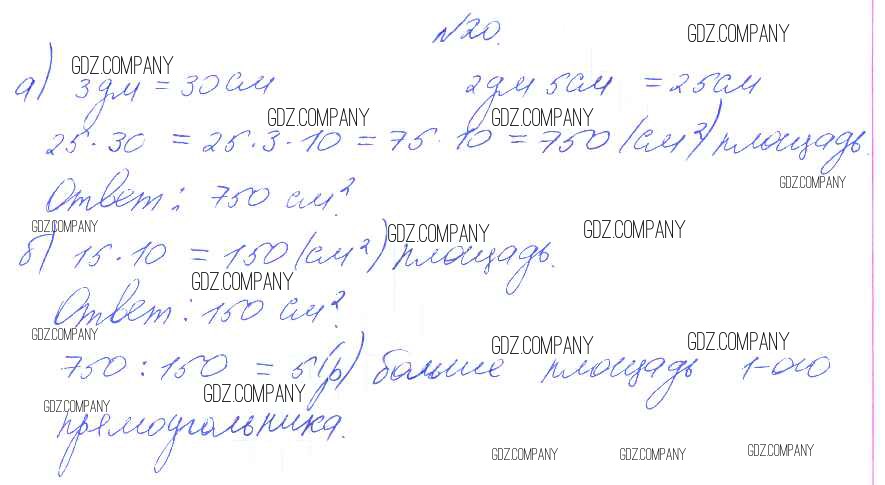 №20. GDZ.COMPANY
GDZ.COMPANY
а) 3 дм = 30 см 2 дм 5 см = 25 см
GDZ.COMPANY GDZ.COMPANY
25 · 30 = 25 · 3 · 10 = 75 · 10 = 750 (см²) площадь.
GDZ.COMPANY
Ответ: 750 см².
GDZ.COMPANY GDZ.COMPANY GDZ.COMPANY
б) 15 · 10 = 150 (см²) площадь.
GDZ.COMPANY
Ответ: 150 см².
GDZ.COMPANY GDZ.COMPANY GDZ.COMPANY
750 : 150 = 5 (р) больше площадь 1-ого
GDZ.COMPANY
GDZ.COMPANY
прямоугольника.
GDZ.COMPANY GDZ.COMPANY GDZ.COMPANY